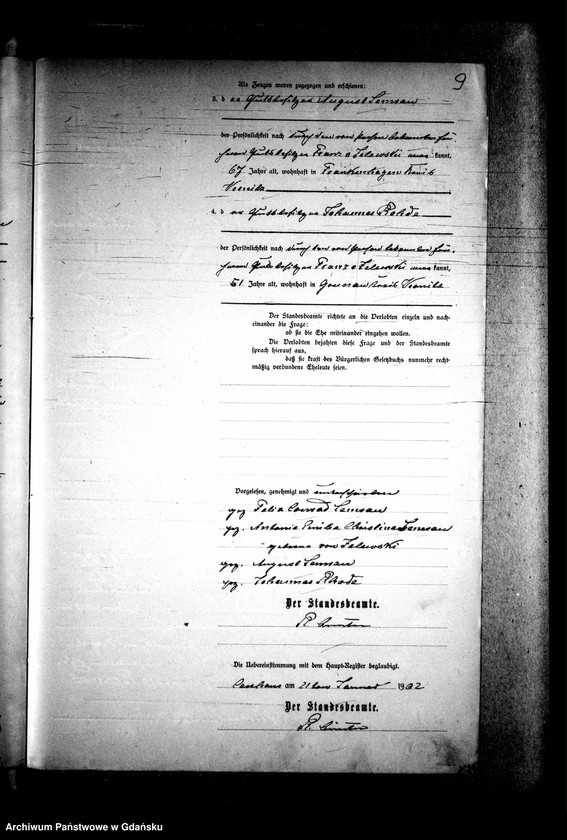 9
Als Zeugen waren zugezogen und erschienen:
3. d er Gutsbesitzer August Lemsau
der Persönlichkeit nach durch den von Person bekannten frü-
heren Gutsbesitzer Franz v Zelewski aner kannt,
67 Jahre alt, wohnhaft in Frankenhagen Kreis
4. d er Gutsbesitzer Johannes Rohde
der Persönlichkeit nach durch den von Person bekannten frü-
heren Gutsbesitzer Franz v Zelewski aner kannt,
51 Jahre alt, wohnhaft in Kreis
Der Standesbeamte richtete an die Verlobten einzeln und nach-
einander die Frage:
ob sie die Ehe miteinander eingehen wollen.
Die Verlobten bejahten diese Frage und der Standesbeamte
sprach hierauf aus,
daß sie kraft des Bürgerlichen Gesetzbuchs nunmehr recht-
mäßig verbundene Eheleute seien.
Vorgelesen, genehmigt und unterschrieben
gez. Felix Conrad Lemsau
gez. Antonie Emilie Christine Lemsau
geborene von Zelewski
gez. August Lemsau
gez. Johannes Rohde
Der Standesbeamte.
Die Uebereinstimmung mit dem Haupt-Register beglaubigt.
Carthaus am 21ten Januar 1902
Der Standesbeamte.
Archiwum Państwowe w Gdańsku